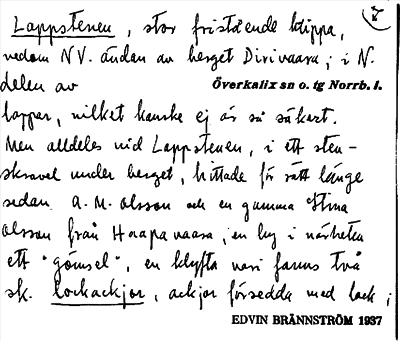 Lappstenen, stor fristående klippa,
nedom NV. ändan av berget Dirivaara; i N.
delen av
Överkalix sn o. tg Norrb. l.
lappar, vilket kanske ej är så säkert.
Men alldeles vid Lappstenen, i ett sten-
skravel under berget, hittade för rätt länge
sedan A. M. Olsson och en gumma Stina
Olsson från Haapavaara, en by i närheten
ett "gömsel", en klyfta vari fanns två
sk. lockackjor, ackjor försedda med lock;
EDVIN BRÄNNSTRÖM 1937